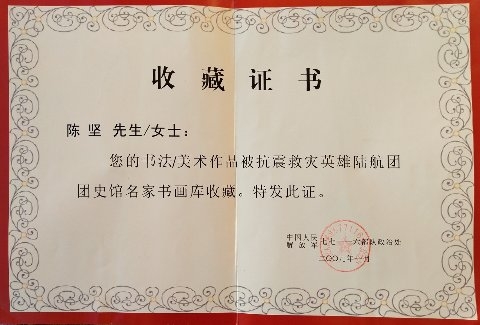 收藏证书
陈坚 先生/女士：
您的书法/美术作品被抗震救灾英雄陆航团
团史馆名家书画库收藏。特发此证。
中国人民
解放军
部队政治处